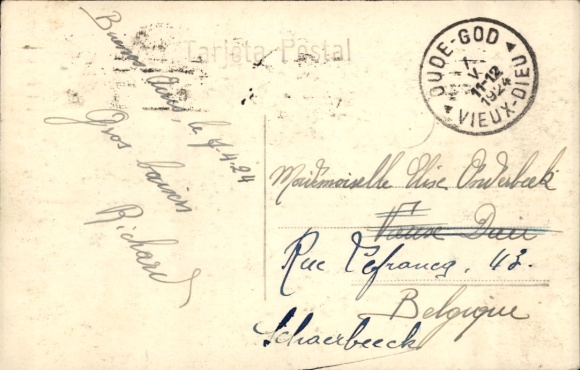 Tarjeta Postal
OUDE-GOD
V
11-12
1924
VIEUX-DIEU
Buenos Aires, le 7-4-24
Gros baisers
Richard
Mademoiselle Elise Onderbeek
Vieux Dieu
Rue Lefrancq, 43.
Belgique
Schaerbeeck